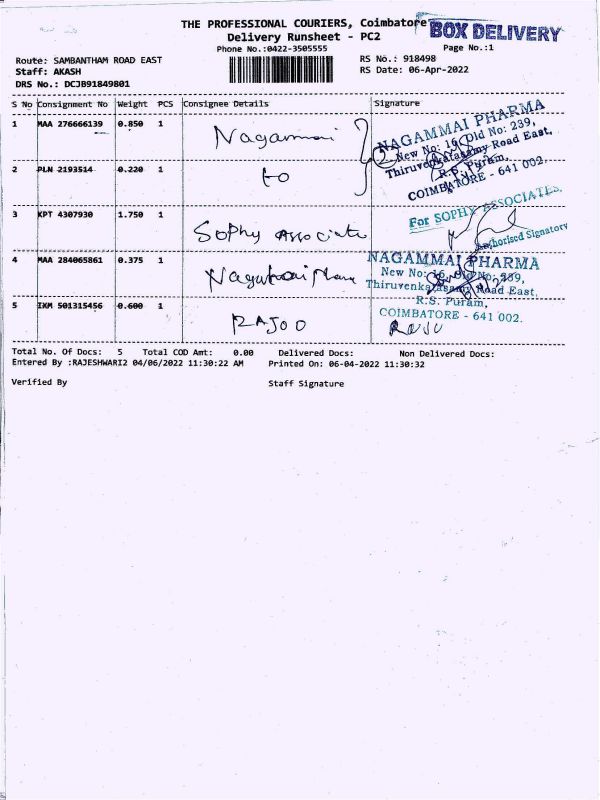 THE PROFESSIONAL COURIERS, Coimbatore
BOX DELIVERY
Delivery Runsheet - PC2
Phone No.:0422-3505555
Page No.:1
Route: SAMBANTHAM ROAD EAST
RS No.: 918498
Staff: AKASH
RS Date: 06-Apr-2022
DRS No.: DCJB91849801
S No Consignment No Weight PCS Consignee Details Signature
1 MAA 276666139 0.850 1 Nagammai
NAGAMMAI PHARMA
New No: 16, Old No: 239,
Thiruvenkatasamy Road East,
R.S. Puram,
COIMBATORE - 641 002.
2 PLN 2193514 0.220 1 to
3 KPT 4307930 1.750 1 Sophy Associate
For SOPHY ASSOCIATES,
Authorised Signatory
4 MAA 284065861 0.375 1
NAGAMMAI PHARMA
New No: 16, Old No: 239,
Thiruvenkatasamy Road East,
R.S. Puram,
COIMBATORE - 641 002.
5 IKM 501315456 0.600 1 RAJOO
Raju
Total No. Of Docs: 5 Total COD Amt: 0.00 Delivered Docs: Non Delivered Docs:
Entered By :RAJESHWARI2 04/06/2022 11:30:22 AM Printed On: 06-04-2022 11:30:32
Verified By Staff Signature